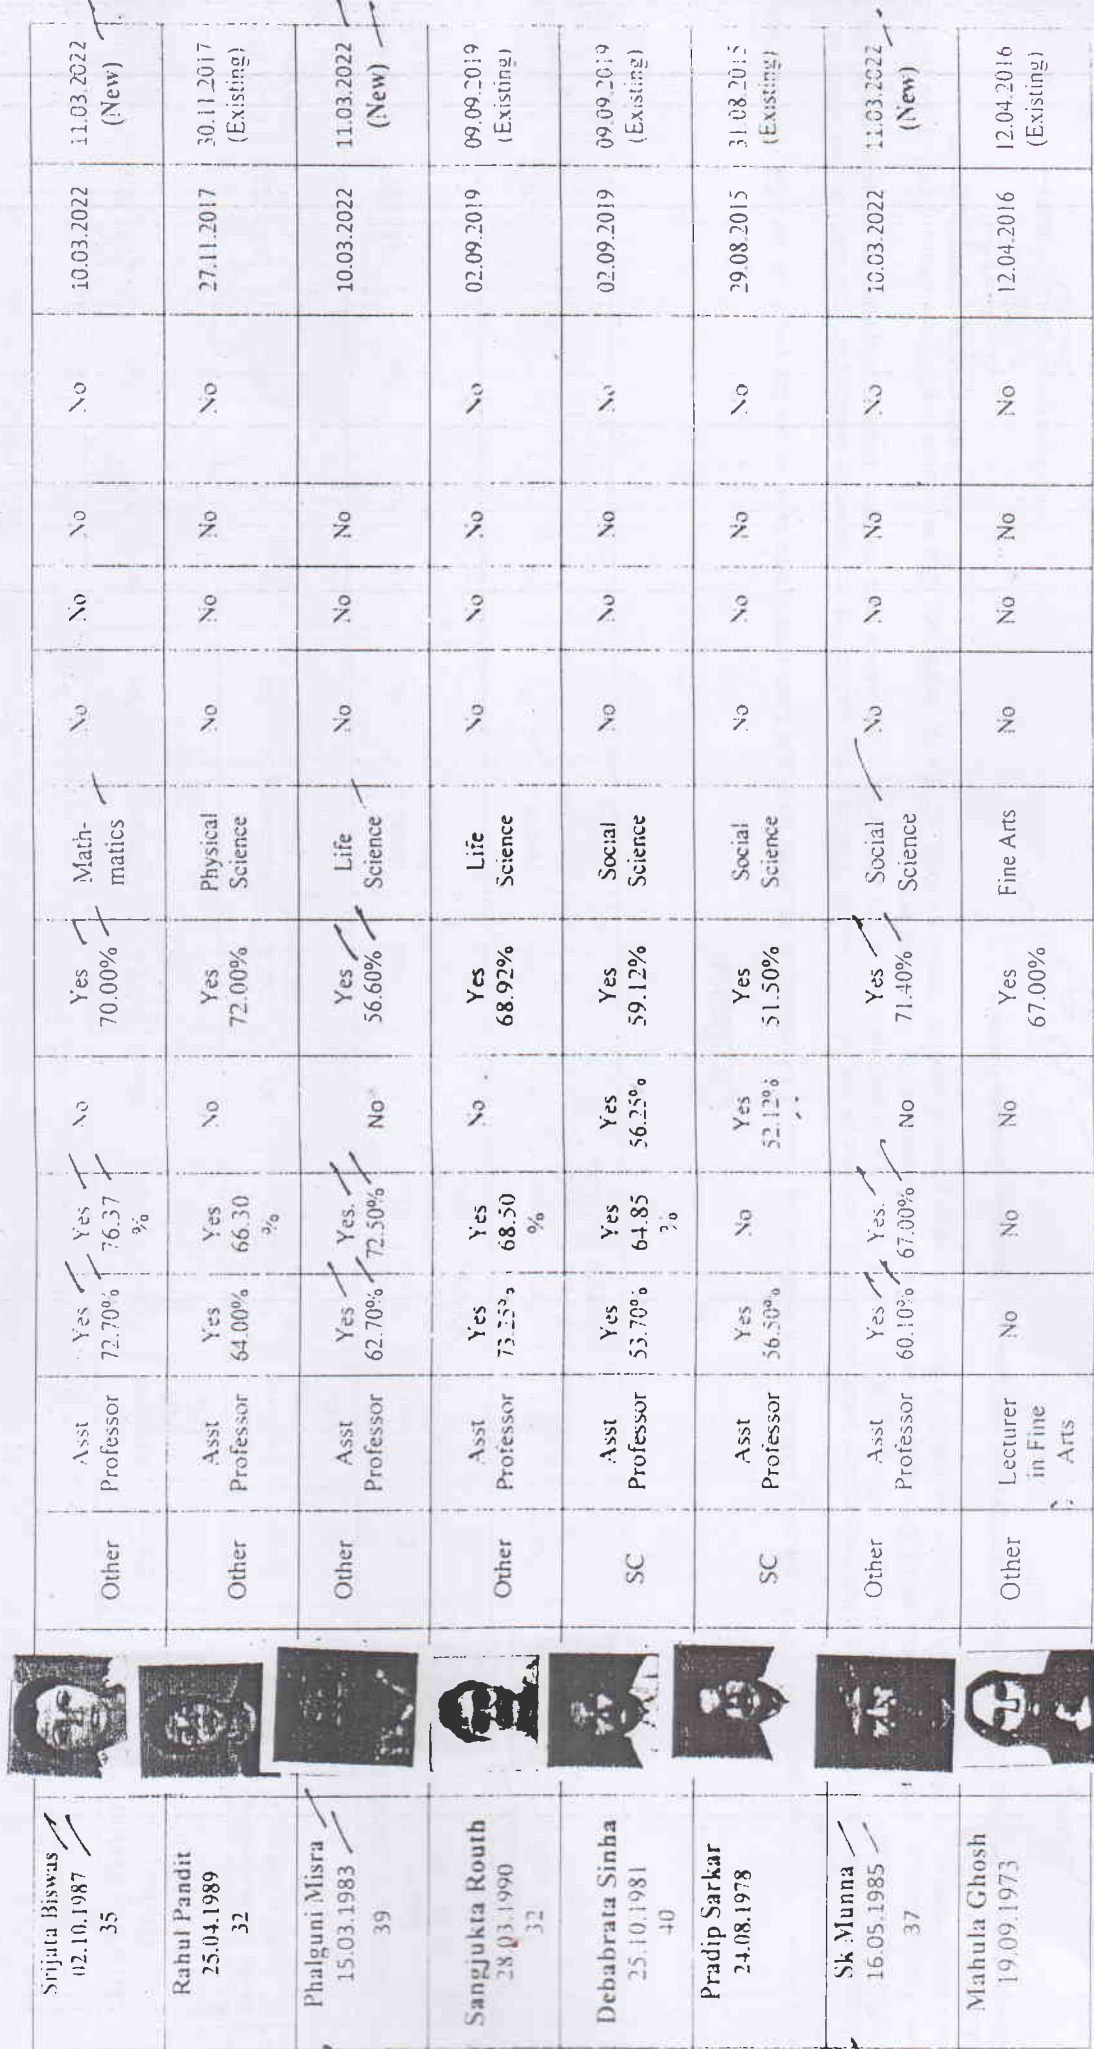 Srijata Biswas
02.10.1987
35
Other
Asst
Professor
Yes
72.70%
Yes
76.37
%
No
Yes
70.00%
Math-
matics
No
No
No
No
10.03.2022
11.03.2022
(New)
Rahul Pandit
25.04.1989
32
Other
Asst
Professor
Yes
64.00%
Yes
66.30
%
No
Yes
72.00%
Physical
Science
No
No
No
No
27.11.2017
30.11.2017
(Existing)
Phalguni Misra
15.03.1983
39
Other
Asst
Professor
Yes
62.70%
Yes.
72.50%
No
Yes
56.60%
Life
Science
No
No
No
10.03.2022
11.03.2022
(New)
Sangjukta Routh
28.03.1990
32
Other
Asst
Professor
Yes
73.25%
Yes
68.50
%
No
Yes
68.92%
Life
Science
No
No
No
No
02.09.2019
09.09.2019
(Existing)
Debabrata Sinha
25.10.1981
40
SC
Asst
Professor
Yes
53.70%
Yes
64.85
%
Yes
56.25%
Yes
59.12%
Social
Science
No
No
No
No
02.09.2019
09.09.2019
(Existing)
Pradip Sarkar
24.08.1978
SC
Asst
Professor
Yes
56.50%
No
Yes
52.12%
Yes
51.50%
Social
Science
No
No
No
No
29.08.2015
31.08.2015
(Existing)
Sk Munna
16.05.1985
37
Other
Asst
Professor
Yes
60.10%
Yes.
67.00%
No
Yes
71.40%
Social
Science
No
No
No
No
10.03.2022
11.03.2022
(New)
Mahula Ghosh
19.09.1973
Other
Lecturer
in Fine
Arts
No
No
No
Yes
67.00%
Fine Arts
No
No
No
No
12.04.2016
12.04.2016
(Existing)